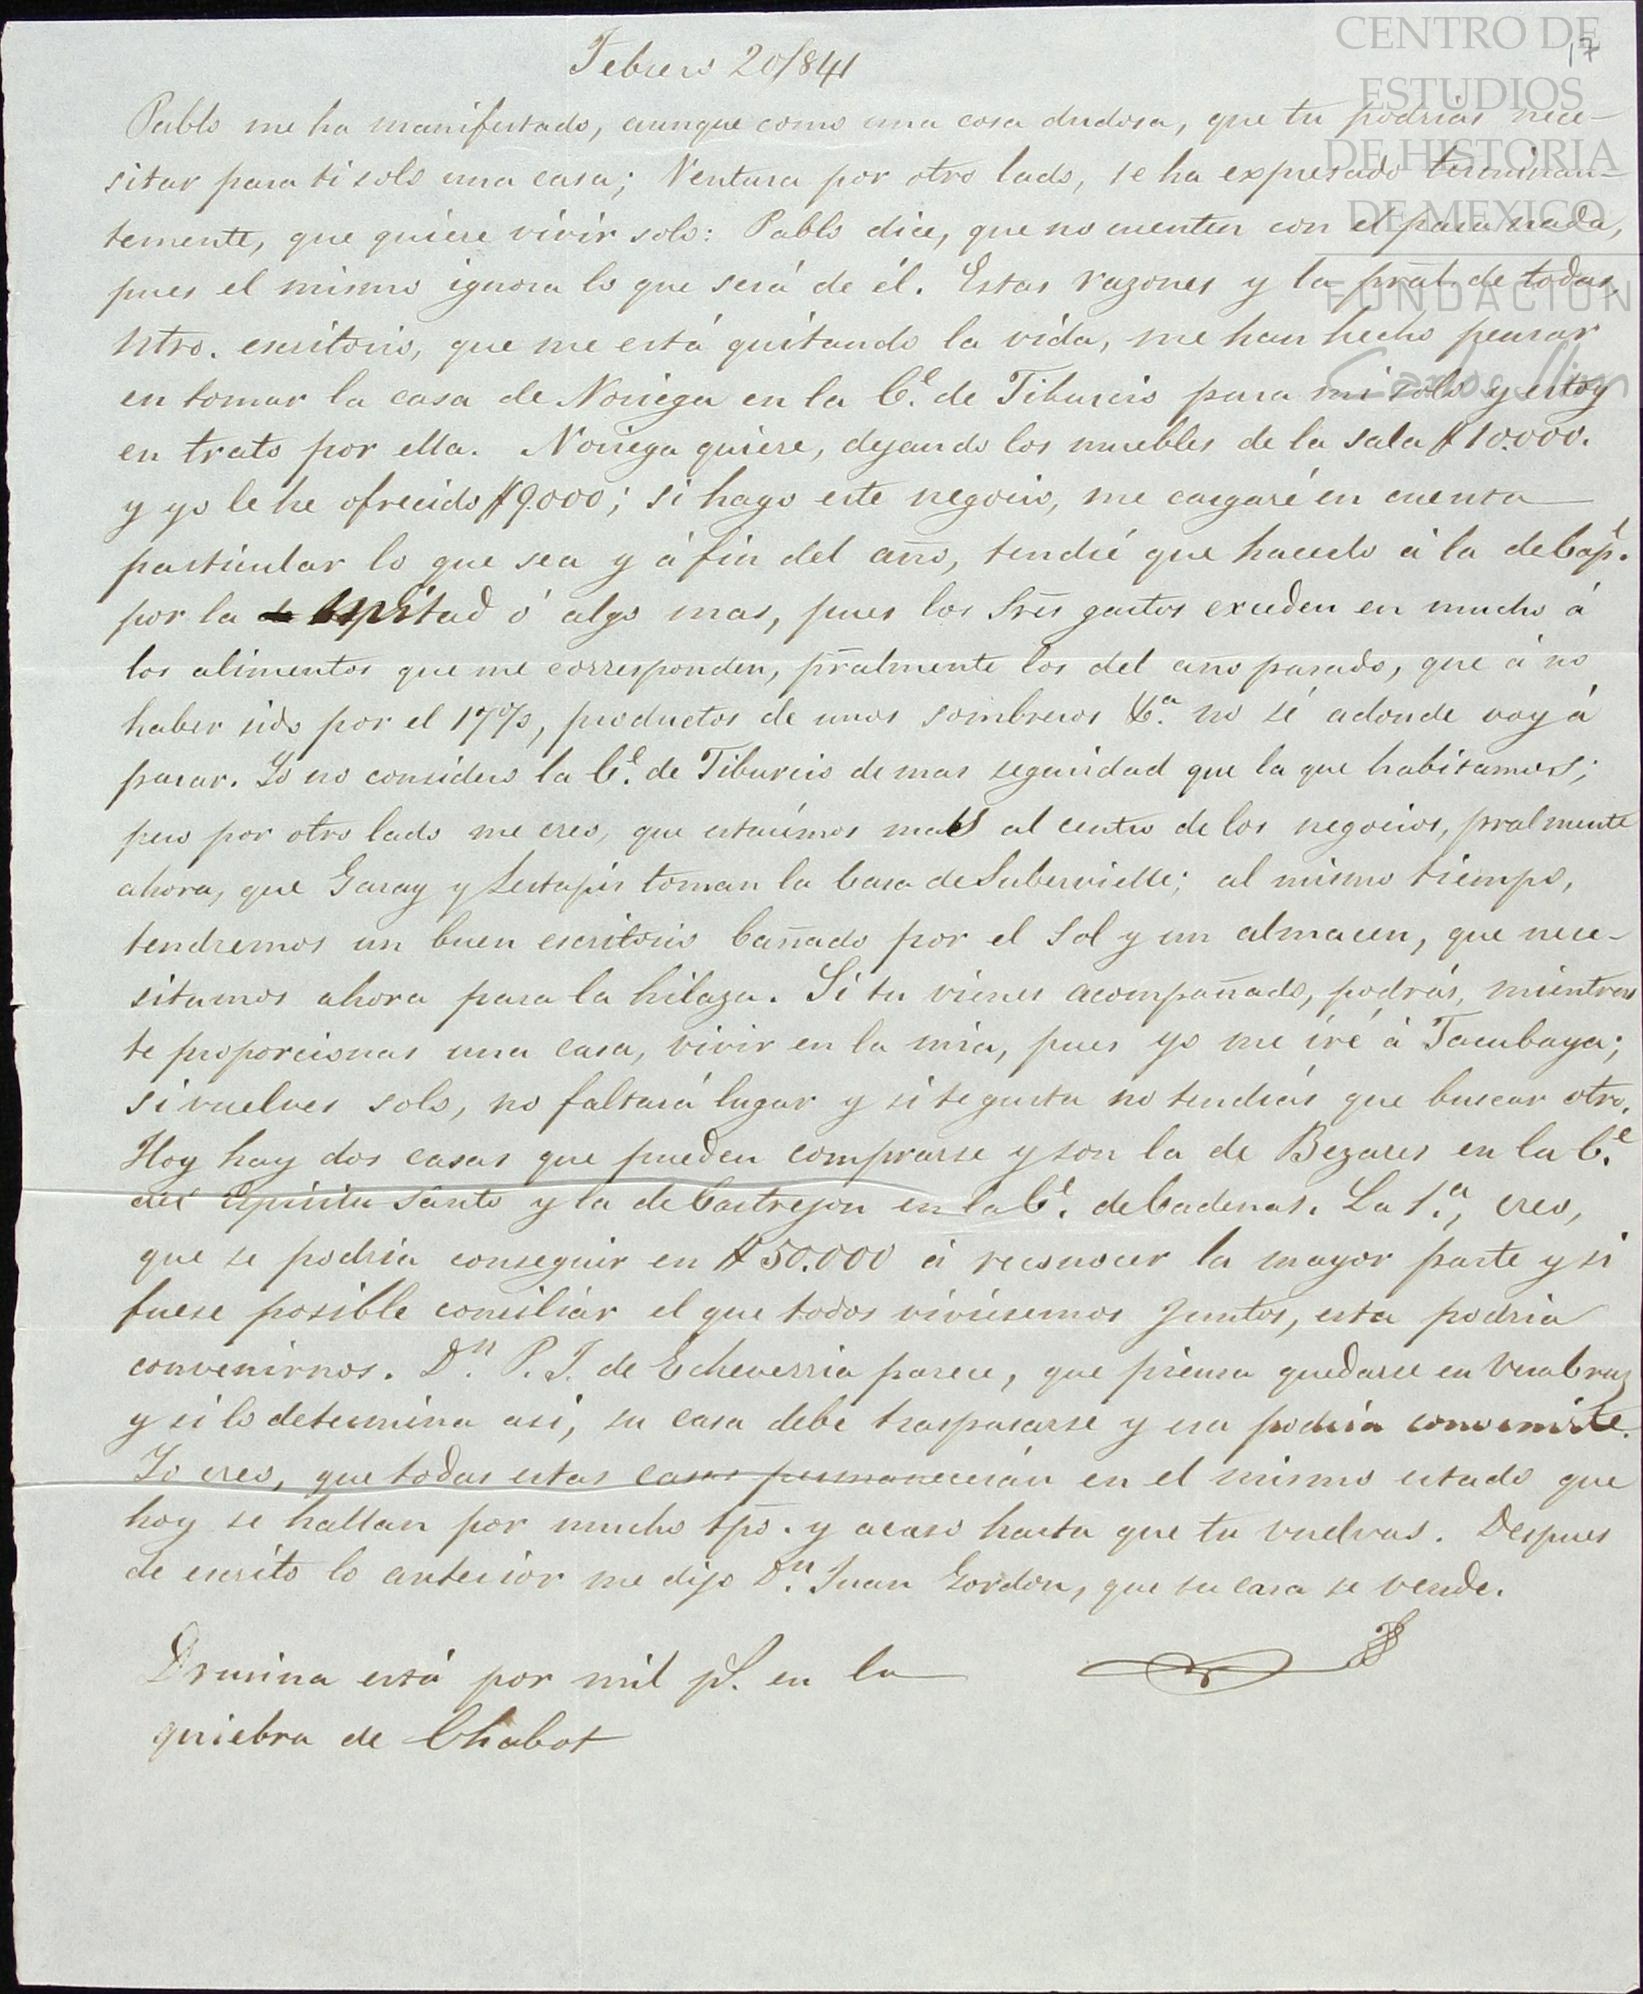 CENTRO DE
ESTUDIOS
DE HISTORIA
DE MEXICO
FUNDACION
Carlos Slim
17
Febrero 20/841
Pablo me ha manifestado, aunque como una cosa dudosa, que tu podrias nece-
sitar para ti solo una casa; Ventura por otro lado, se ha expresado terminan-
temente, que quiere vivir solo: Pablo dice, que no cuenten con el para nada,
pues el mismo ignora lo que será de él. Estas razones y la prãl. de todas,
Ntro. escritorio, que me está quitando la vida, me han hecho pensar
en tomar la casa de Noriega en la C.e de Tiburcio para mi solo y estoy
en trato por ella. Noriega quiere, dejando los muebles de la sala $10.000.
y yo le he ofrecido $9.000; si hago este negocio, me cargaré en cuenta
particular lo que sea y á fin del año, tendré que hacerlo á la de Cap.l
por la mitad ó algo mas, pues los gastos exceden en mucho á
los alimentos que me corresponden, prãlmente los del año pasado, que á no
haber sido por el 17%, productos de unos sombreros &.a no sé adonde voy á
parar. Yo no considero la C.e de Tiburcio de mas seguridad que la que habitamos;
pero por otro lado me creo, que estarémos mas al centro de los negocios, pralmente
ahora, que Garay y Lestapis toman la Casa de Subervielle; al mismo tiempo,
tendremos un buen escritorio bañado por el Sol y un almacen, que nece-
sitamos ahora para la hilaza. Si tu vienes acompañado, podrás, mientras
te proporcionas una casa, vivir en la mia, pues yo me iré á Tacubaya;
si vuelves solo, no faltará lugar y si te gusta no tendrás que buscar otro.
Hoy hay dos casas que pueden comprarse y son la de Bezares en la C.e
del Espiritu Santo y la de Castrejon en la C.e de Cadenas. La 1.a, creo,
que se podria conseguir en $50.000 á reconocer la mayor parte y si
fuese posible conciliar el que todos viviesemos juntos, esta podria
convenirnos. D.n P. J. de Echeverria parece, que piensa quedarse en VeraCruz
y si lo determina asi, su casa debe traspasarse y esa podria convenirte.
Yo creo, que todas estas casas permanecerán en el mismo estado que
hoy se hallan por mucho tpõ. y acaso hasta que tu vuelvas. Despues
de escrito lo anterior me dijo D.n Juan Gordon, que su casa se vende.
Drusina está por mil ps. en la
quiebra de Chabot